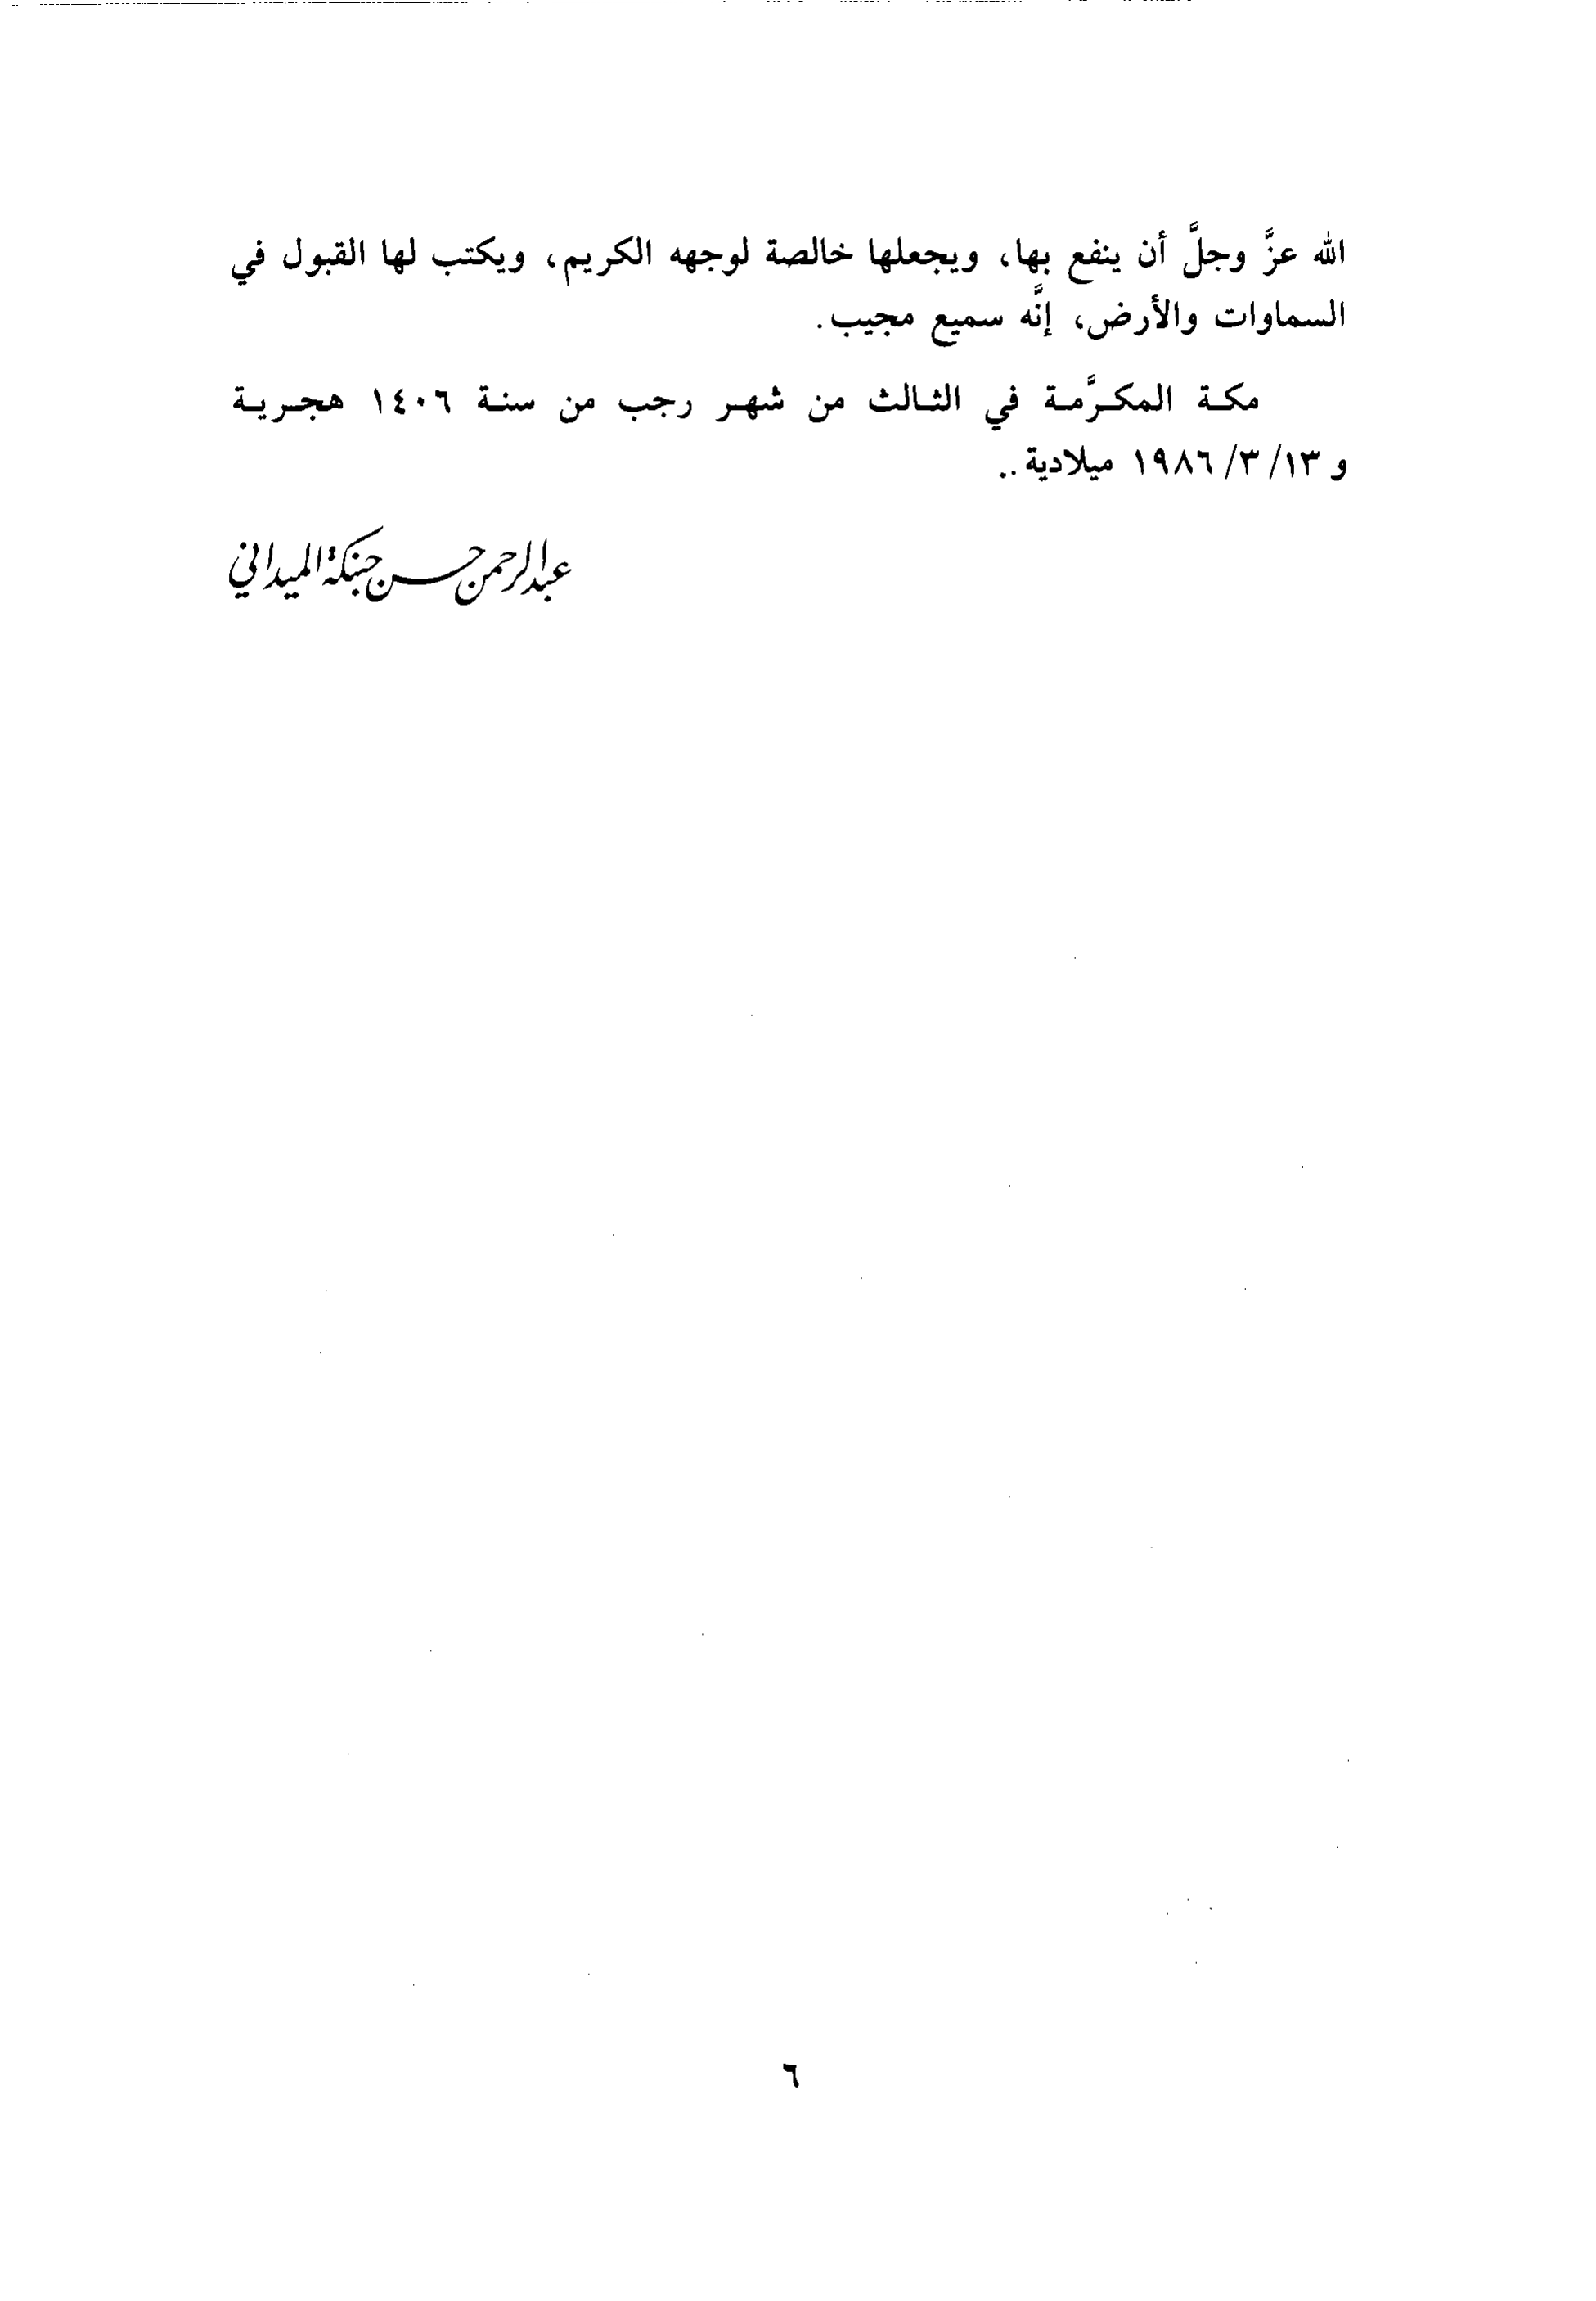 الله عزَّ وجلَّ أن ينفع بها، ويجعلها خالصة لوجهه الكريم، ويكتب لها القبول في
السماوات والأرض، إنَّه سميع مجيب.
مكة المكرَّمة في الثالث من شهر رجب من سنة ١٤٠٦ هجرية
و ١٣/ ٣/ ١٩٨٦ ميلادية..
عبدالرحمن حسن حبنكة الميداني
٦